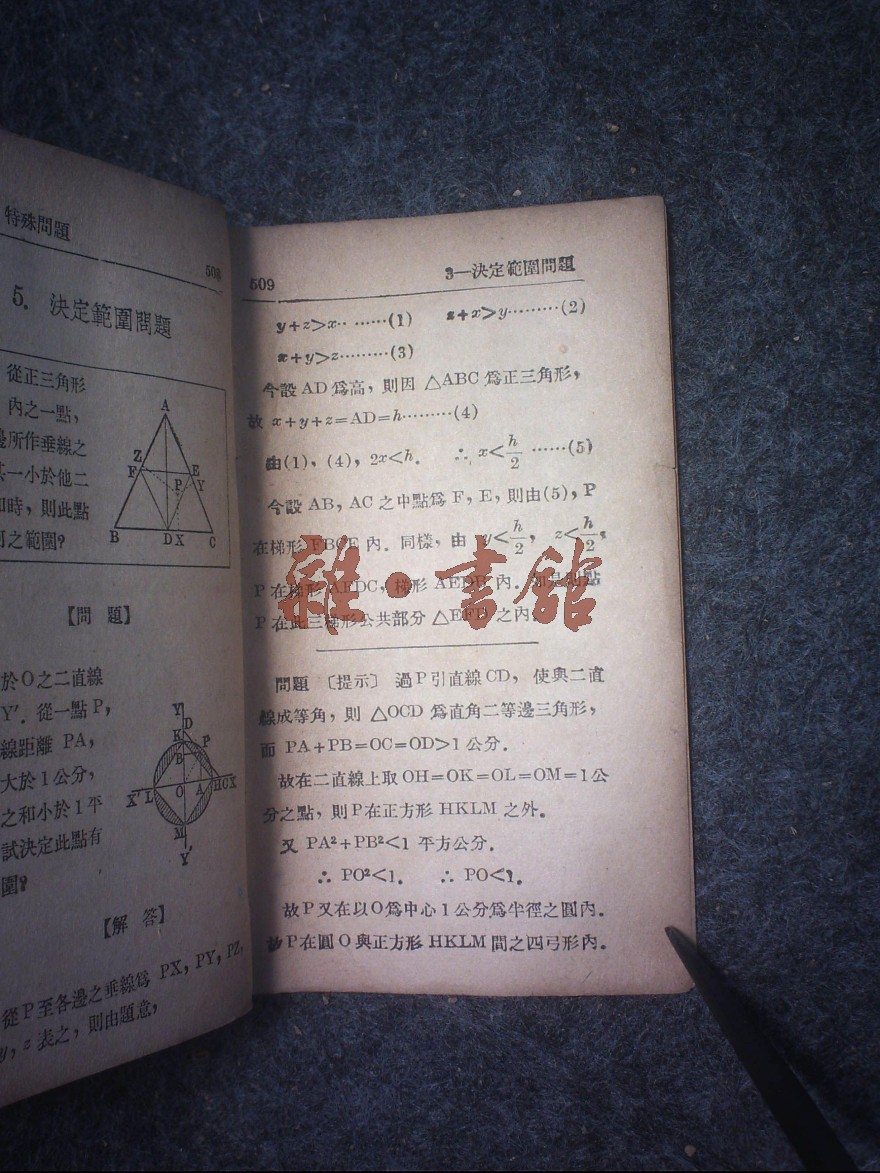 特殊問題
508
5. 決定範圍問題
從正三角形
內之一點，
邊所作垂線之
其一小於他二
和時，則此點
可之範圍?
A
Z
F
E
Y
P
B
D X
C
【問題】
於O之二直線
Y′. 從一點P,
線距離 PA,
大於1公分,
之和小於1平
試決定此點有
圍?
Y
D
K
P
B
X′
L
O
A
H C X
M
Y′
【解答】
從P至各邊之垂線爲 PX, PY, PZ,
y, z 表之，則由題意,
509
3—決定範圍問題
y+z>x………(1) z+x>y………(2)
x+y>z………(3)
今設AD爲高，則因 △ABC 爲正三角形,
故 x+y+z=AD=h………(4)
由(1), (4), 2x<h. ∴ x<h/2 ……(5)
今設 AB, AC 之中點爲 F, E, 則由(5), P
在梯形 FBCE 內. 同樣, 由 y<h/2, z<h/2,
P 在梯形 AFDC, 梯形 AEDB 內.
P 在此三梯形公共部分 △EFD 之內.
雜·書館
問題 〔提示〕 過P引直線CD, 使與二直
線成等角, 則 △OCD 爲直角二等邊三角形,
而 PA+PB=OC=OD>1公分.
故在二直線上取OH=OK=OL=OM=1公
分之點, 則P在正方形 HKLM 之外.
又 PA²+PB²<1 平方公分.
∴ PO²<1. ∴ PO<1.
故P又在以O爲中心1公分爲半徑之圓內.
故P在圓O與正方形 HKLM 間之四弓形內.